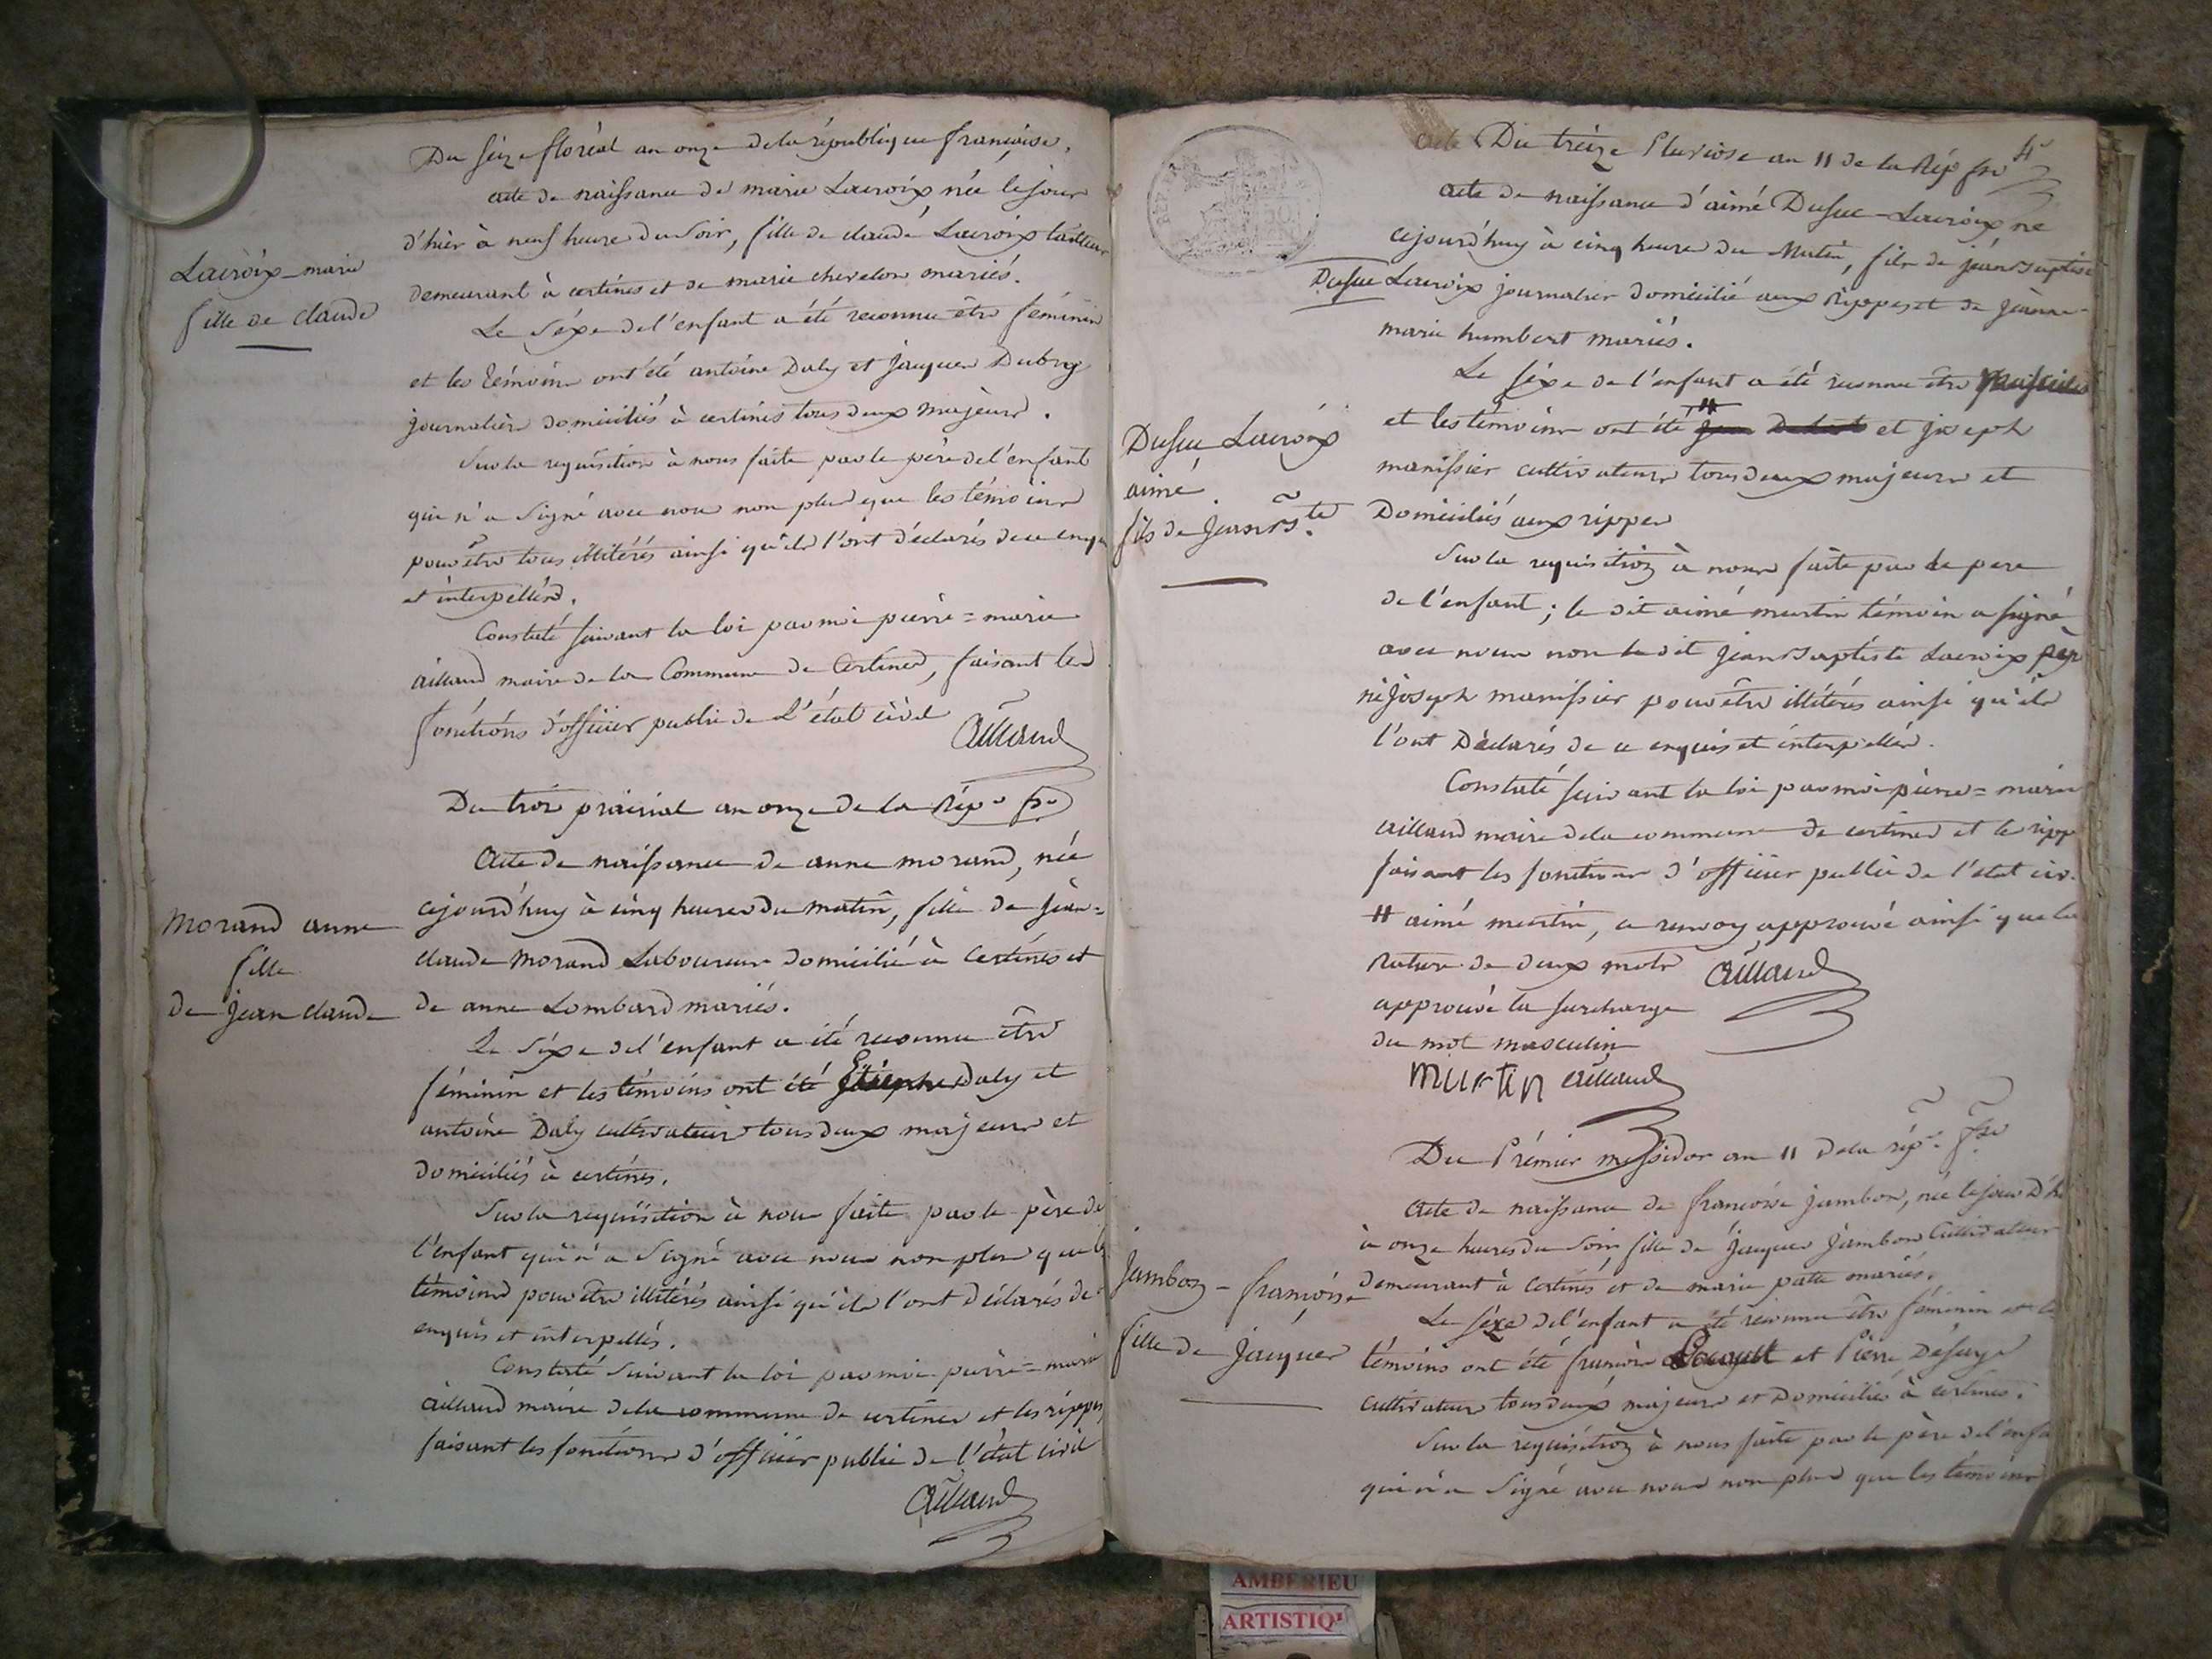 Du seize floréal an onze de la république française.
acte de naissance de marie Lacroix née le jour
d'hièr à neuf heure du Soir, fille de claude Lacroix tailleur
Lacroix marie
fille de claude
demeurant à certines et de marie chevelon mariés.
Le Séxe de l'enfant a été reconnu être féminin
et les témoins ont été antoine Daly et jacques Dubreg
journalièrs domiciliés à certines tous deux majeurs.
Sur la requisition à nous faite par le père de l'enfant
qui n'a signé avec nous non plus que les témoins
pour être tous illitérés ainsi qu'ils l'ont déclarés de ce enquis
et interpellés.
Constaté suivant la loi par moi pierre=marie
aillaud maire de la Commune de Certines, faisant les
fonctions d'officier public de L'état civil
aillaud
Du trois prairial an onze de la Rép.e f.se
Acte de naissance de anne morand, née
cejourd'huy à cinq heures du matin, fille de jean=
Morand anne
fille
de jean claude
claude Morand Laboureur domicilié à Certines et
de anne Lombard mariés.
Le Séxe de l'enfant a été reconnu être
féminin et les témoins ont été Daly et
antoine Daly cultivateurs tous deux majeurs et
domiciliés à certines.
Sur la requisition à nous faite par le père de
l'enfant qui n'a Signé avec nous non plus que les
témoins pour être illitérés ainsi qu'ils l'ont déclarés de
enquis et interpellés.
Constaté Suivant la loi par moi pierre=marie
aillaud maire de la commune de certines et les rippes
faisant les fonctions d'officier public de l'état civil
aillaud
acte Du treize Pluviose an 11 de la Rép fse
acte de naissance d'aimé Dufuc-Lacroix né
cejourd'huy à cinq heure du Matin, fils de jean Baptiste
Dufuc Lacroix journalier domicilié aux Rippes et de jeanne
marie humbert mariés.
Le séxe de l'enfant a été reconnu être Masculin
et les témoins ont été # et joseph
Dufuc Lacroix
aimé
fils de Jean B.te
manissier cultivateurs tous deux majeurs et
Domiciliés aux rippes
Sur la requisition à nous faite par le pere
de l'enfant; le dit aimé martin témoin a signé
avec nous non le dit jean Baptiste Lacroix père
ni joseph manissier pour être illitérés ainsi qu'ils
l'ont Déclarés de ce enquis et interpellés.
Constaté suivant la loi par moi pierre=marie
aillaud maire de la commune de certines et les ripp
faisant les fonctions d'officier public de l'état civ.
# aimé martin, ce renvoy approuvé ainsi que la
Rature de deux mots aillaud
approuvé la surcharge
du mot masculin
Martin aillaud
Du Prémier messidor an 11 de la rép.e fse
Acte de naissance de francoise jambon, née le jour D'h
à onze heures du Soir fille de jacques Jambon Cultivateur
jambon - françoise
fille de jacques
demeurant à Certines et de marie patte mariés.
Le séxe de l'enfant a été reconnu être féminin et les
témoins ont été francois et Pierre Défarge
cultivateurs tous deux majeurs et Domiciliés à certines.
Sur la requisition à nous faite par le père de l'enfa
qui n'a Signé avec nous non plus que les témoins
AMBERIEU
ARTISTIQU